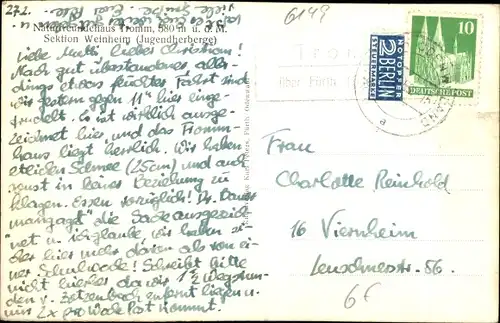 27.2.
6149
Naturfreundehaus Tromm, 580 m ü. d. M.
Sektion Weinheim (Jugendherberge)
Liebe Mutti, liebes Christkind!
Nach gut überstandener, aller-
dings etwas feuchter Fahrt sind
wir gestern gegen 11 hier einge-
trudelt. Es ist wirklich ausge-
zeichnet hier und das Tromm-
haus liegt herrlich. Wir haben
etwas Schnee (25cm) und auch
sonst in keiner Beziehung zu
klagen. Essen vorzüglich! Dr. Bauer
"managt" die Sache ausgezeich-
net u. ich glaube, wir haben
hier mehr davon als von ei-
ner Schulwoche! Schreibt bitte
nicht hierher da wir 1½ Wegstun-
den v. Zotzenbach entfernt liegen u.
nur 2 x pro Woche Post kommt.
Tromm
über Fürth
NOTOPFER
2 BERLIN
STEUERMARKE
10
DEUTSCHE POST
a
Frau
Charlotte Reinhold
16 Viernheim
Lorscherstr. 86.
6F